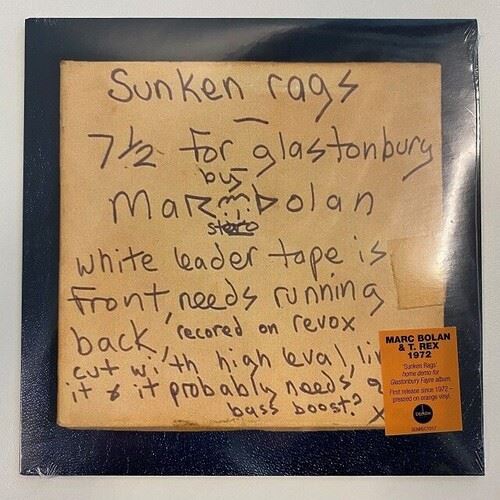 Sunken rags
7½ for glastonbury
by
Marc Bolan
stereo
white leader tape is
front, needs running
back, recored on revox
cut with high leval, li
it & it probably needs a
bass boost? x
MARC BOLAN
& T. REX
1972
'Sunken Rags'
home demo for
Glastonbury Fayre album.
First release since 1972 –
pressed on orange vinyl.
DEMON